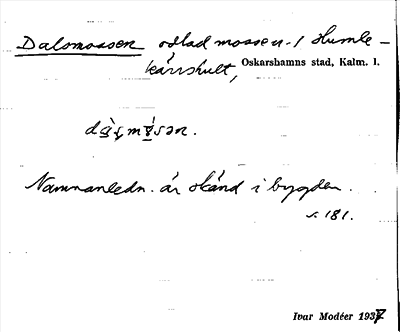 Dalsmossen odlad mosse i Humle-
kärrshult, Oskarshamns stad, Kalm. l.
Namnanledn. är okänd i bygden.
s. 181.
Ivar Modéer 1937